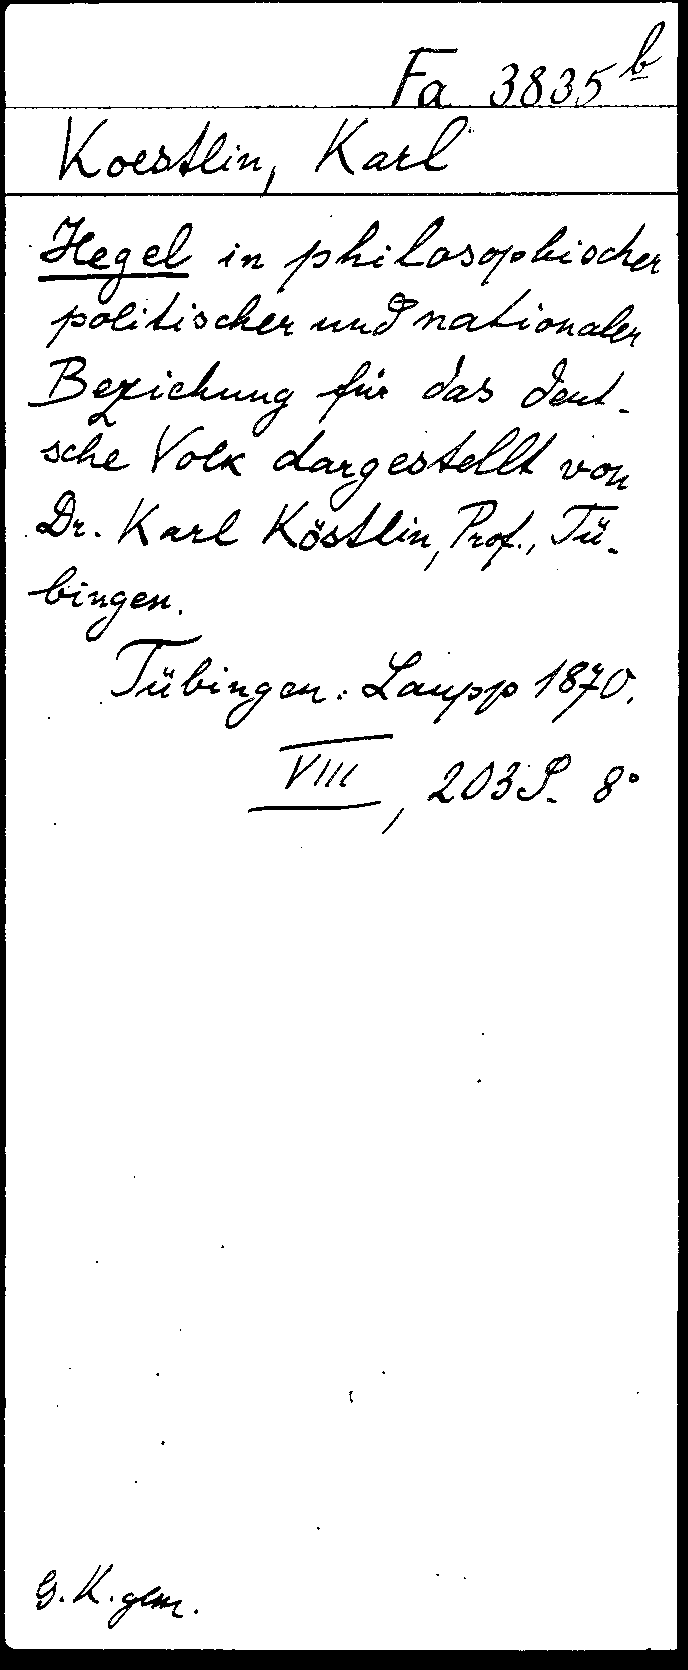 Fa 3835 b
Koestlin, Karl
Hegel in philosophischer
politischer und nationaler
Beziehung für das deut-
sche Volk dargestellt von
Dr. Karl Köstlin, Prof., Tü-
bingen.
Tübingen: Laupp 1870.
VIII, 203 S. 8°
G. K. gem.